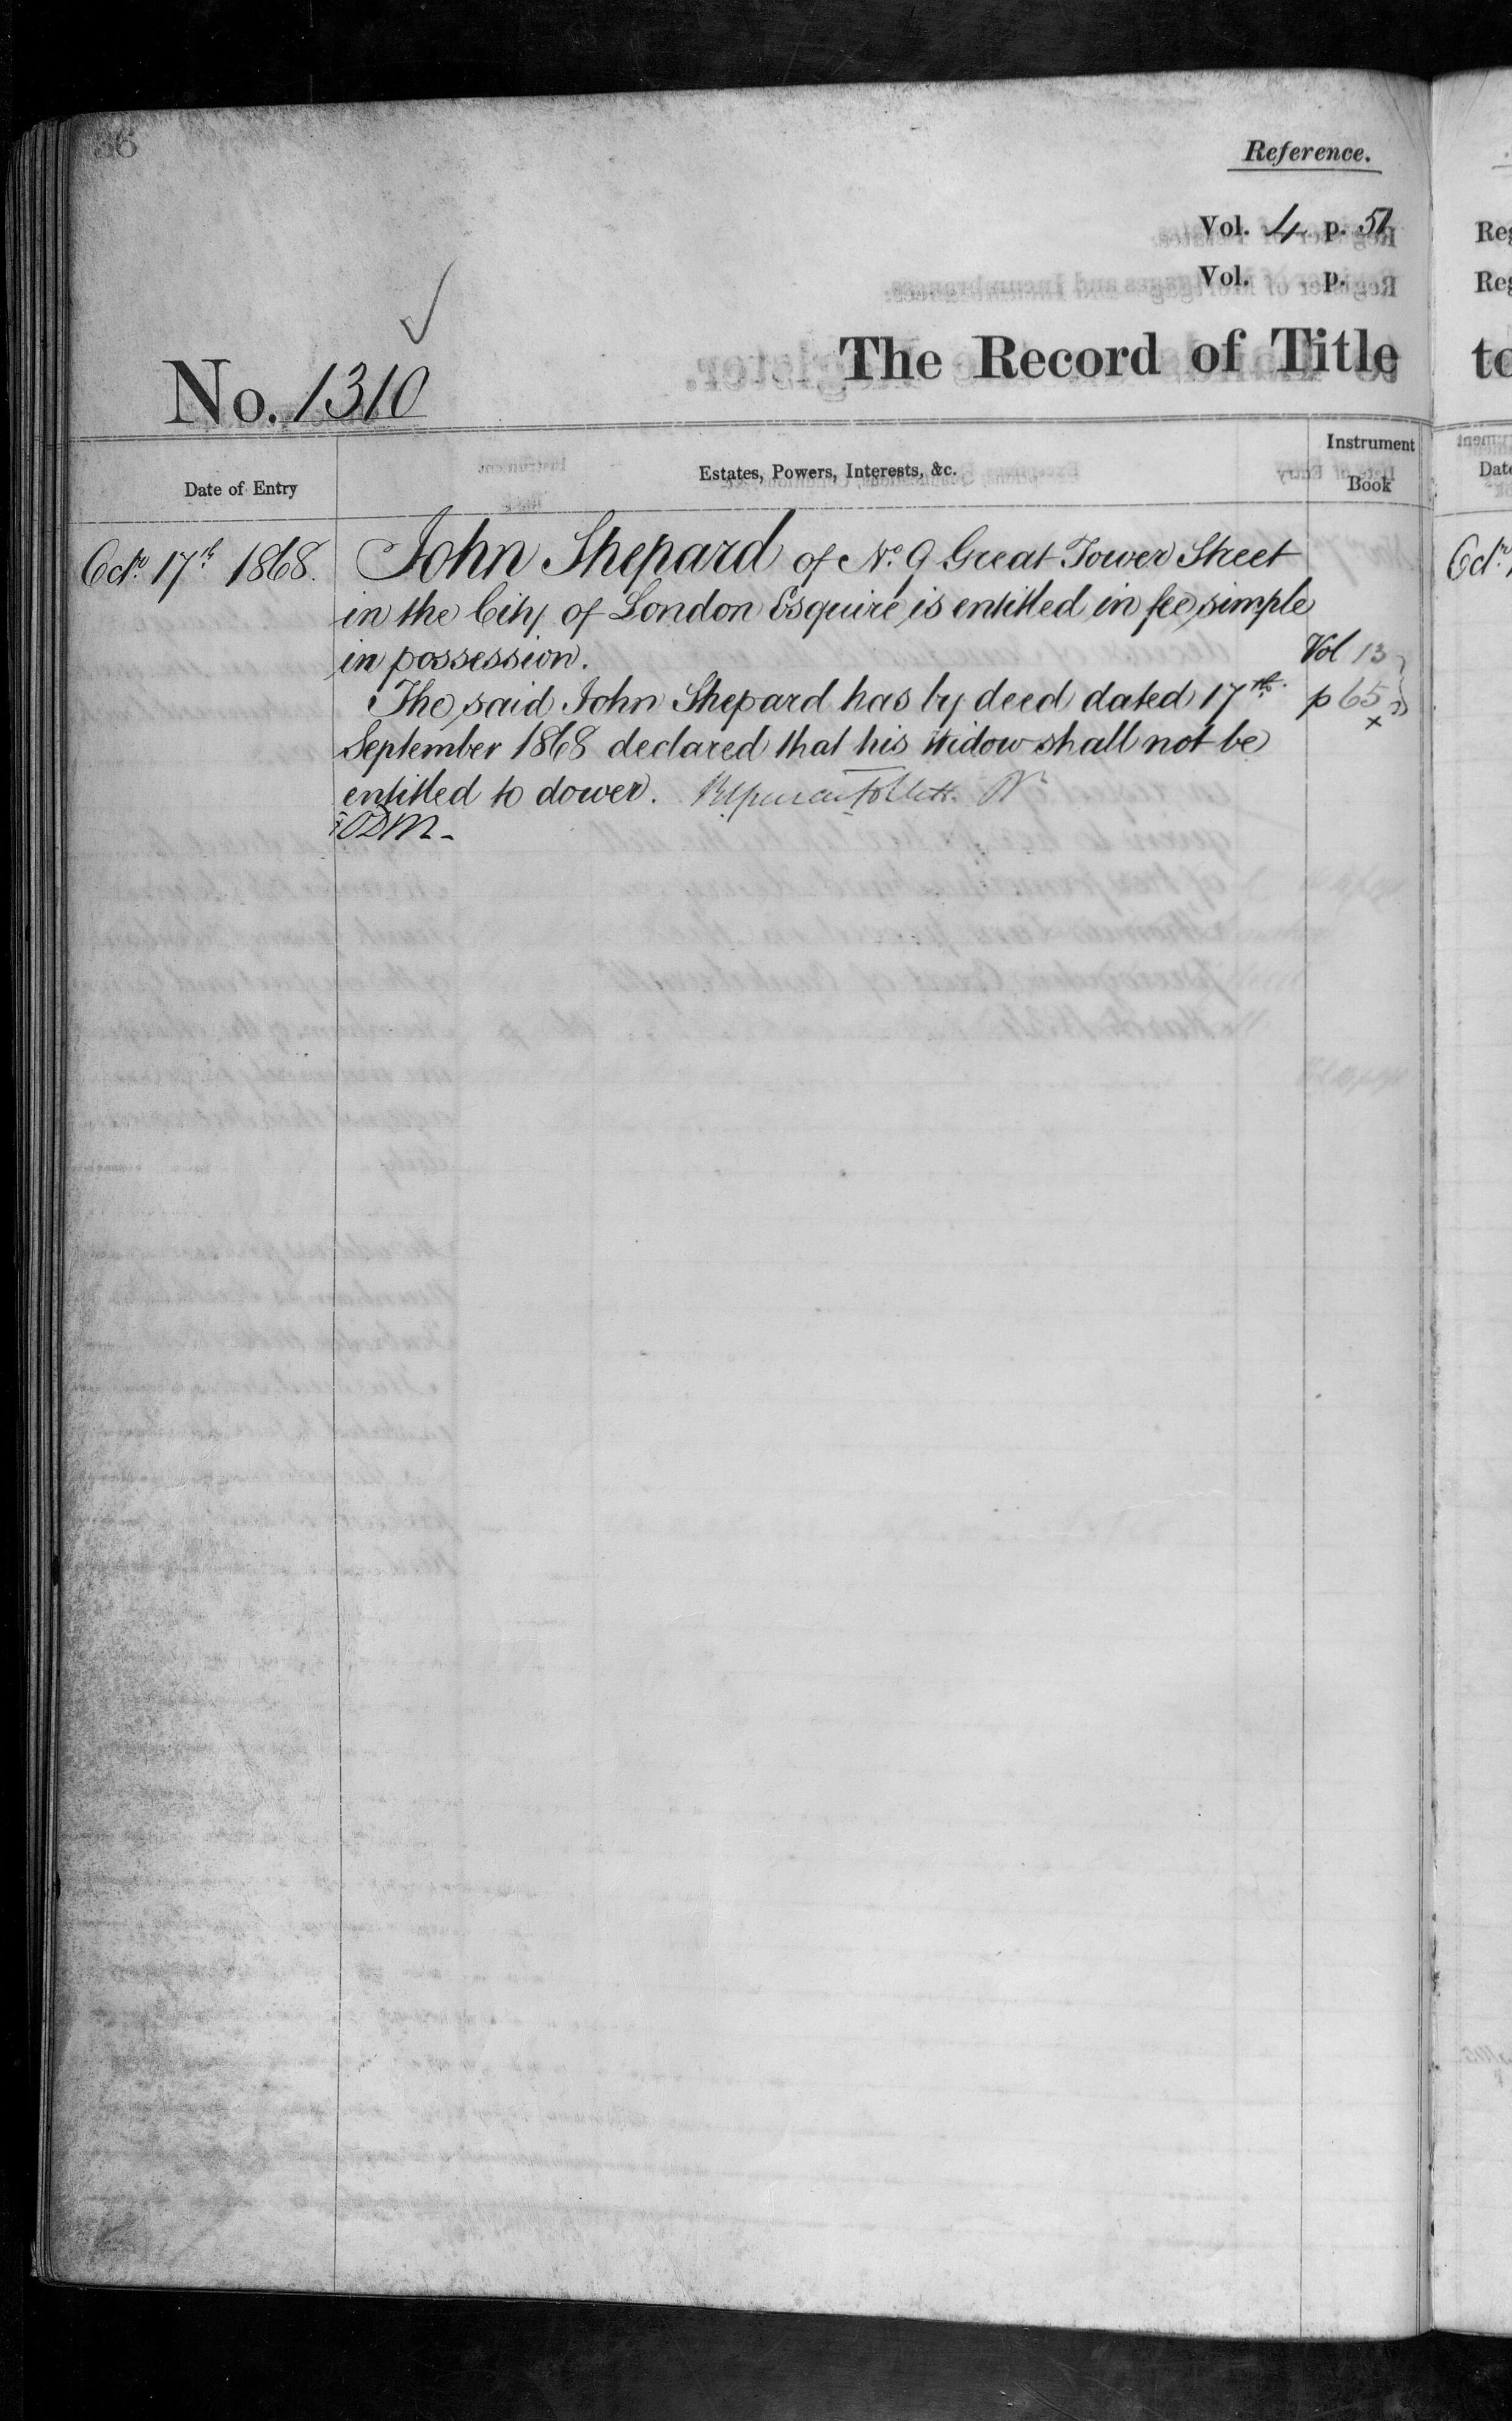 36
Reference.
Vol. 4 p. 51
Vol. p.
The Record of Title
No. 1310
Date of Entry
Estates, Powers, Interests, &c.
Instrument Book
Octr. 17th 1868.
John Shepard of No. 9 Great Tower Street
in the City of London Esquire is entitled in fee simple
in possession.
The said John Shepard has by deed dated 17th.
September 1868 declared that his Widow shall not be
entitled to dower.
Vol 13
p 65
x
Reg
Reg
to
Date
Octr.